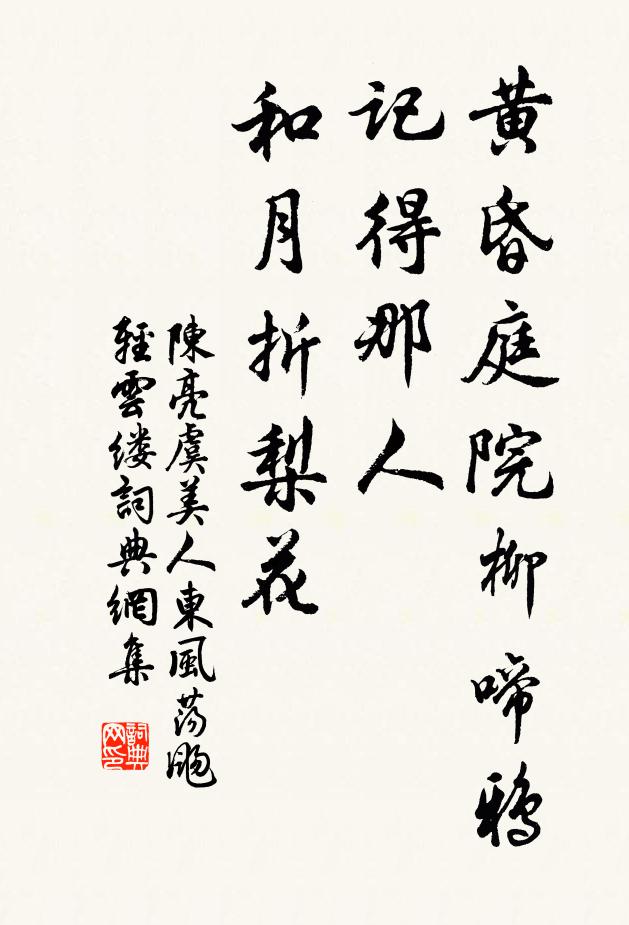 黄昏庭院柳啼鴉
記得那人
和月折梨花
陳亮虞美人東風蕩颺
輕雲缕詞典網集
詞典网印